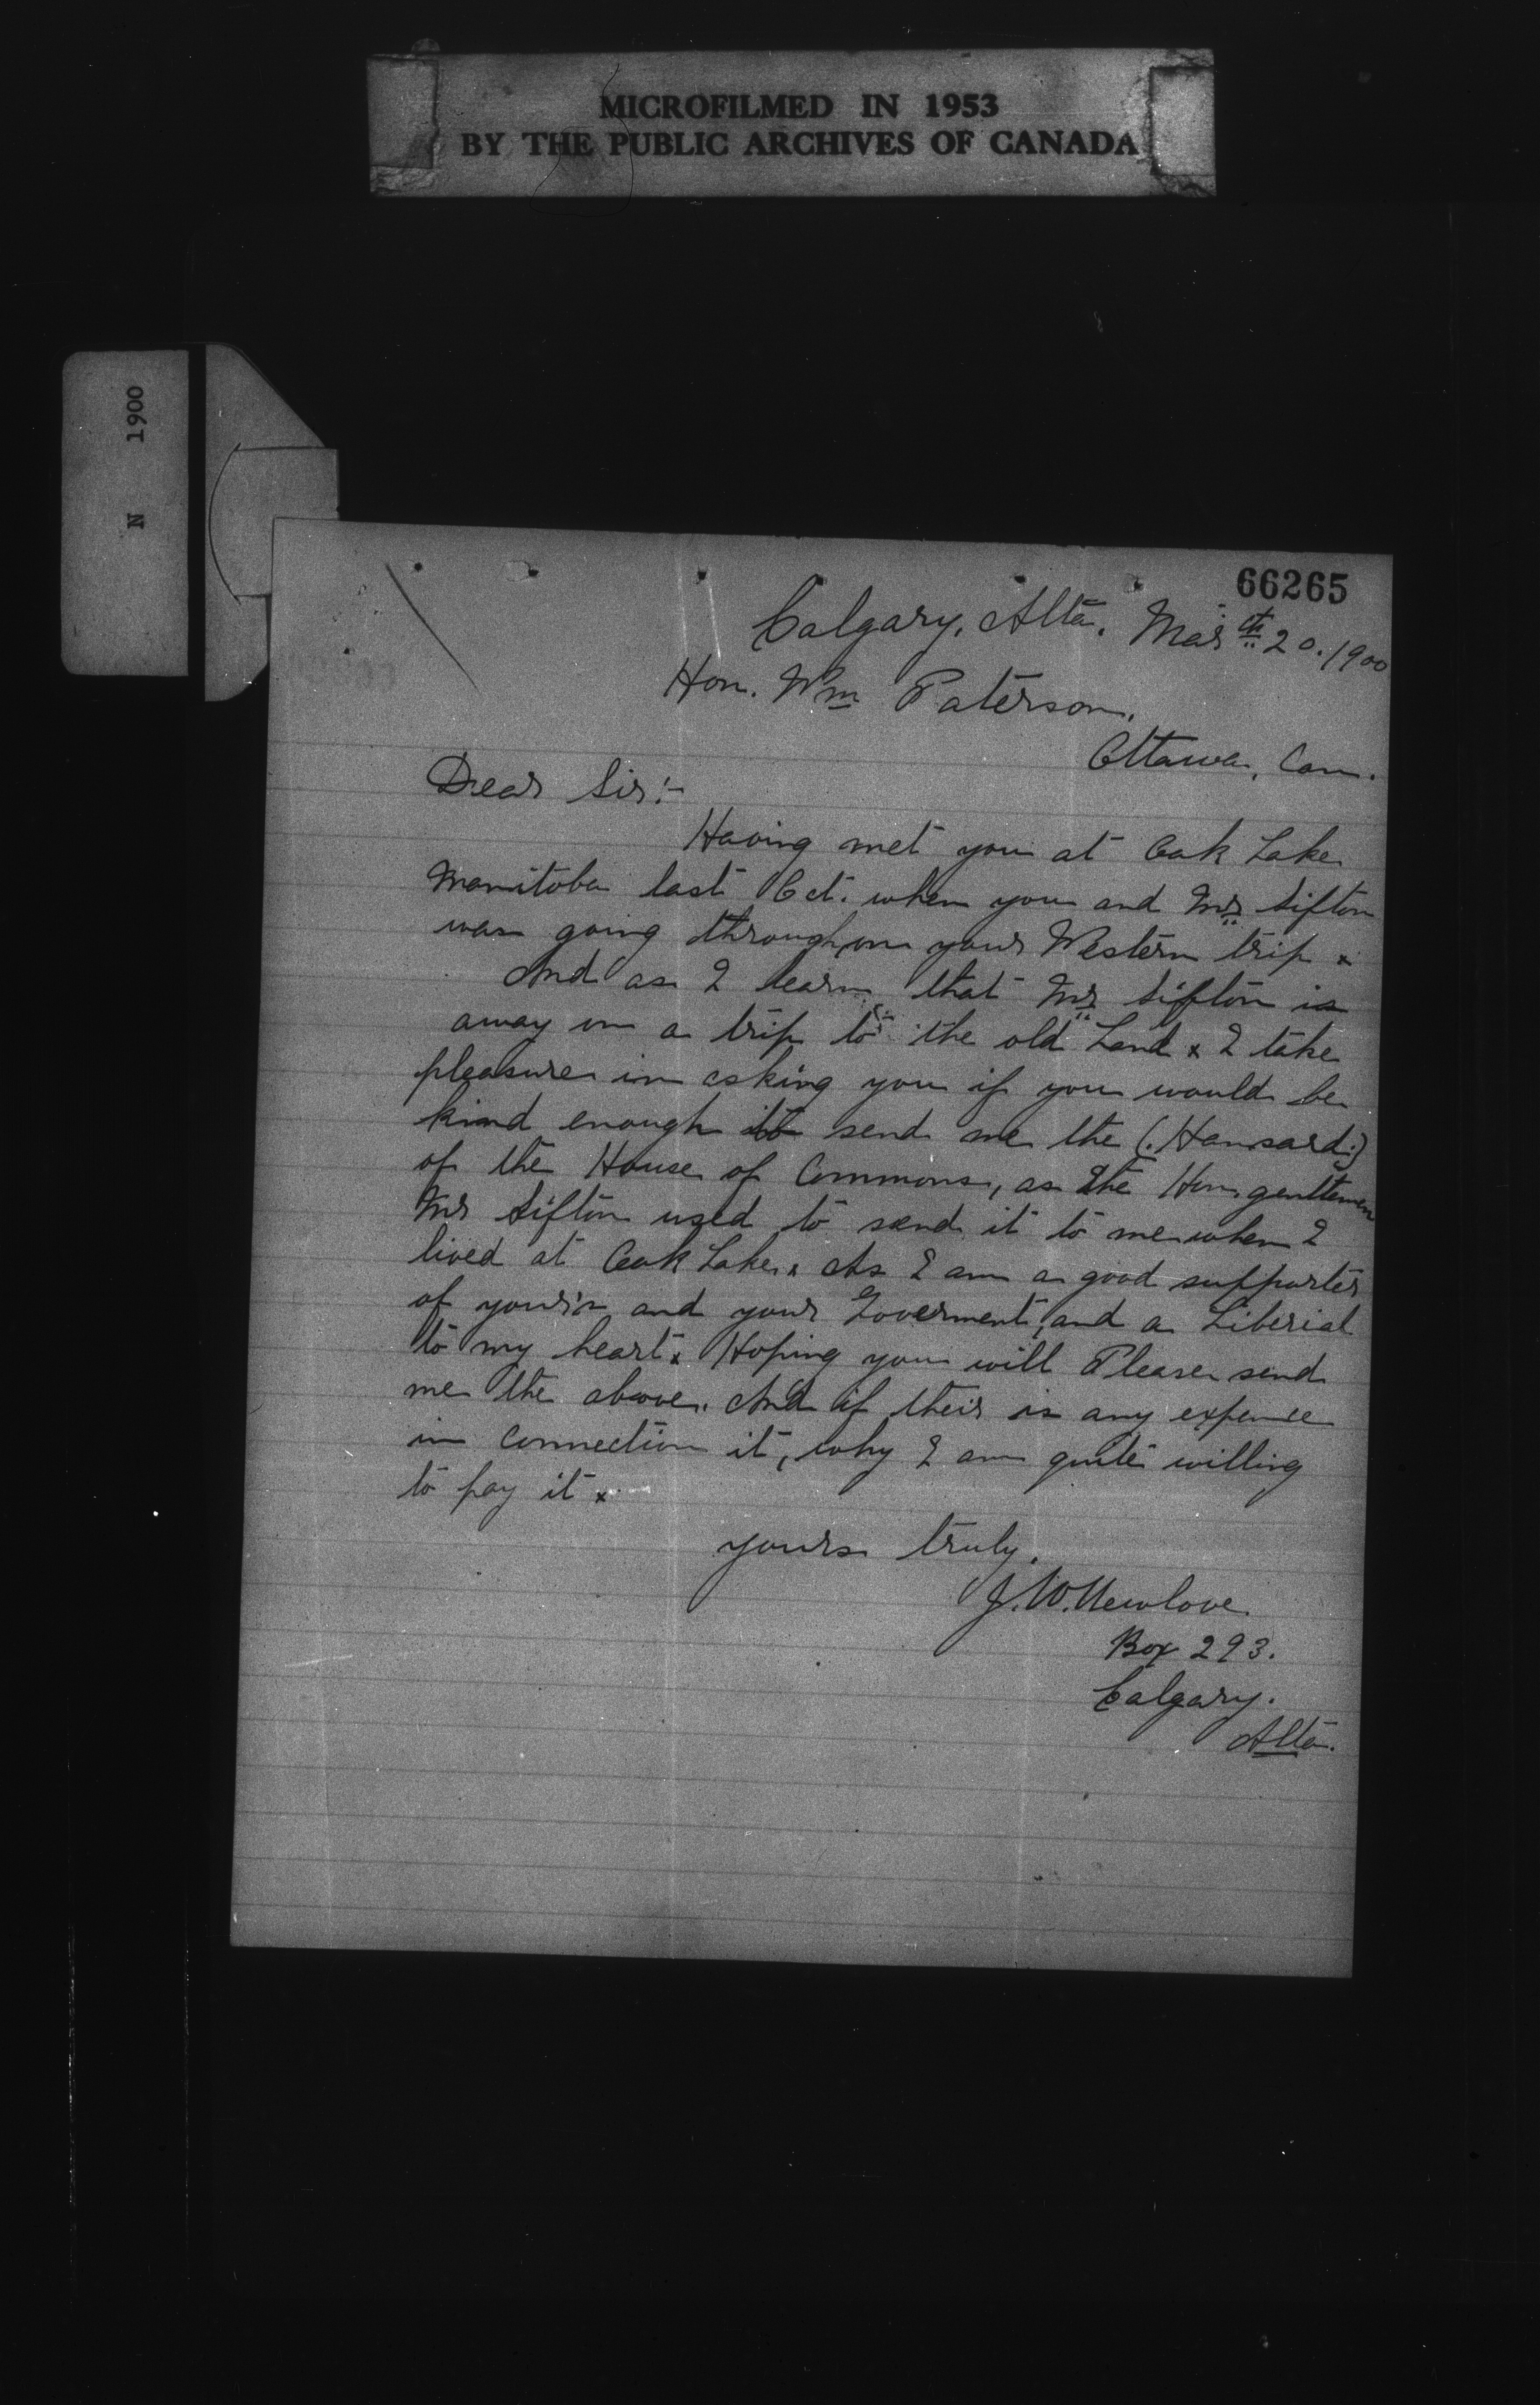 MICROFILMED IN 1953
BY THE PUBLIC ARCHIVES OF CANADA
N 1900
66265
Calgary, Alta. Mar th 20. 1900
Hon. Wm Paterson,
Ottawa, Can.
Dear Sir:-
Having met you at Oak Lake
Manitoba last Oct. when you and Mr Sifton
was going through, on your Western trip x
And as I learn that Mr Sifton is
away on a trip to the old Land x I take
pleasure in asking you if you would be
kind enough to send me the (Hansard.)
of the House of Commons, as the Hon. gentlemen
Mr Sifton used to send it to me when I
lived at Oak Lake x As I am a good supporter
of your's and your Goverment, and a Liberial
to my heart x Hoping you will Please send
me the above. And if their is any expense
in connection it, why I am quite willing
to pay it x
yours truly,
J. W. Newlove
Box 293.
Calgary.
Alta.